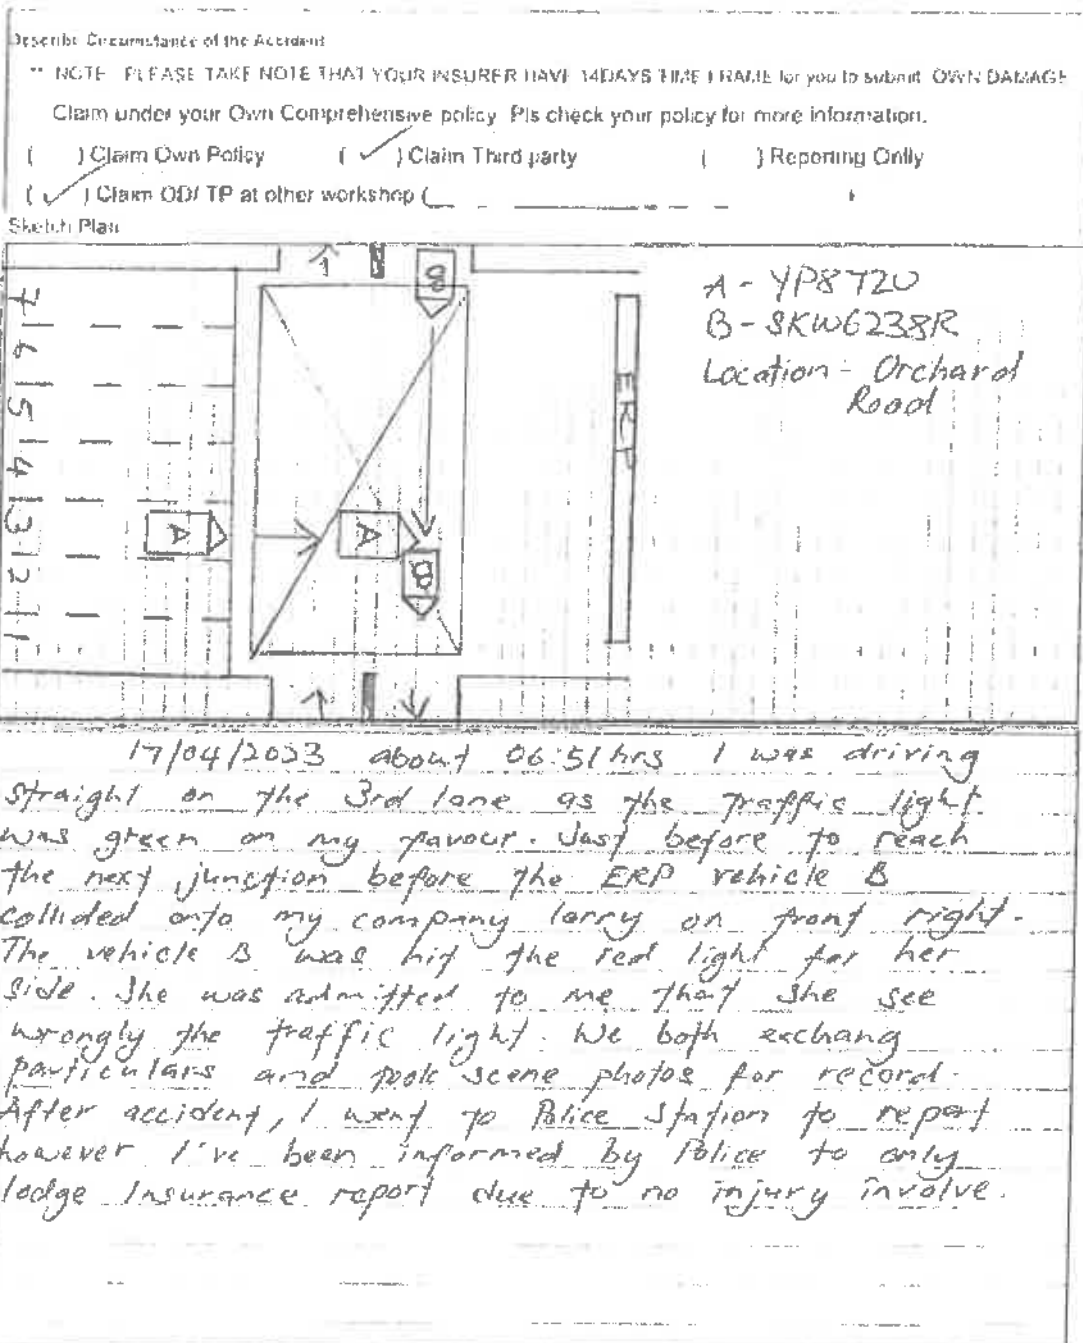 Describe Circumstance of the Accident
** NOTE PLEASE TAKE NOTE THAT YOUR INSURER HAVE 14DAYS TIME FRAME for you to submit OWN DAMAGE
Claim under your Own Comprehensive policy Pls check your policy for more information.
( ) Claim Own Policy ( ✓ ) Claim Third party ( ) Reporting Only
( ✓ ) Claim OD/ TP at other workshop (
Sketch Plan
A - YP872U
B - SKW6238R
Location - Orchard
Road
B
7
6
5
4
3
2
1
A
A
B
ERP
17/04/2023 about 06:51hrs I was driving
straight on the 3rd lane as the traffic light
was green on my favour. Just before to reach
the next junction before the ERP vehicle B
collided onto my company lorry on front right.
The vehicle B was hit the red light for her
side. She was admitted to me that she see
wrongly the traffic light. We both exchang
particulars and took scene photos for record.
After accident, I went to Police Station to report
however I've been informed by Police to only
lodge Insurance report due to no injury involve.